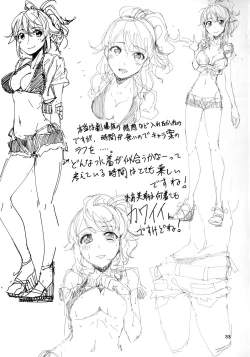 本当は劇場版の感想など入れたかったの
ですが、時間が無いのでキャラ案の
ラフを……。
どんな水着が似合うかなーって
考えている時間はとても楽しい
ですね!
何着ても
カワイイ
ですけどね!
33